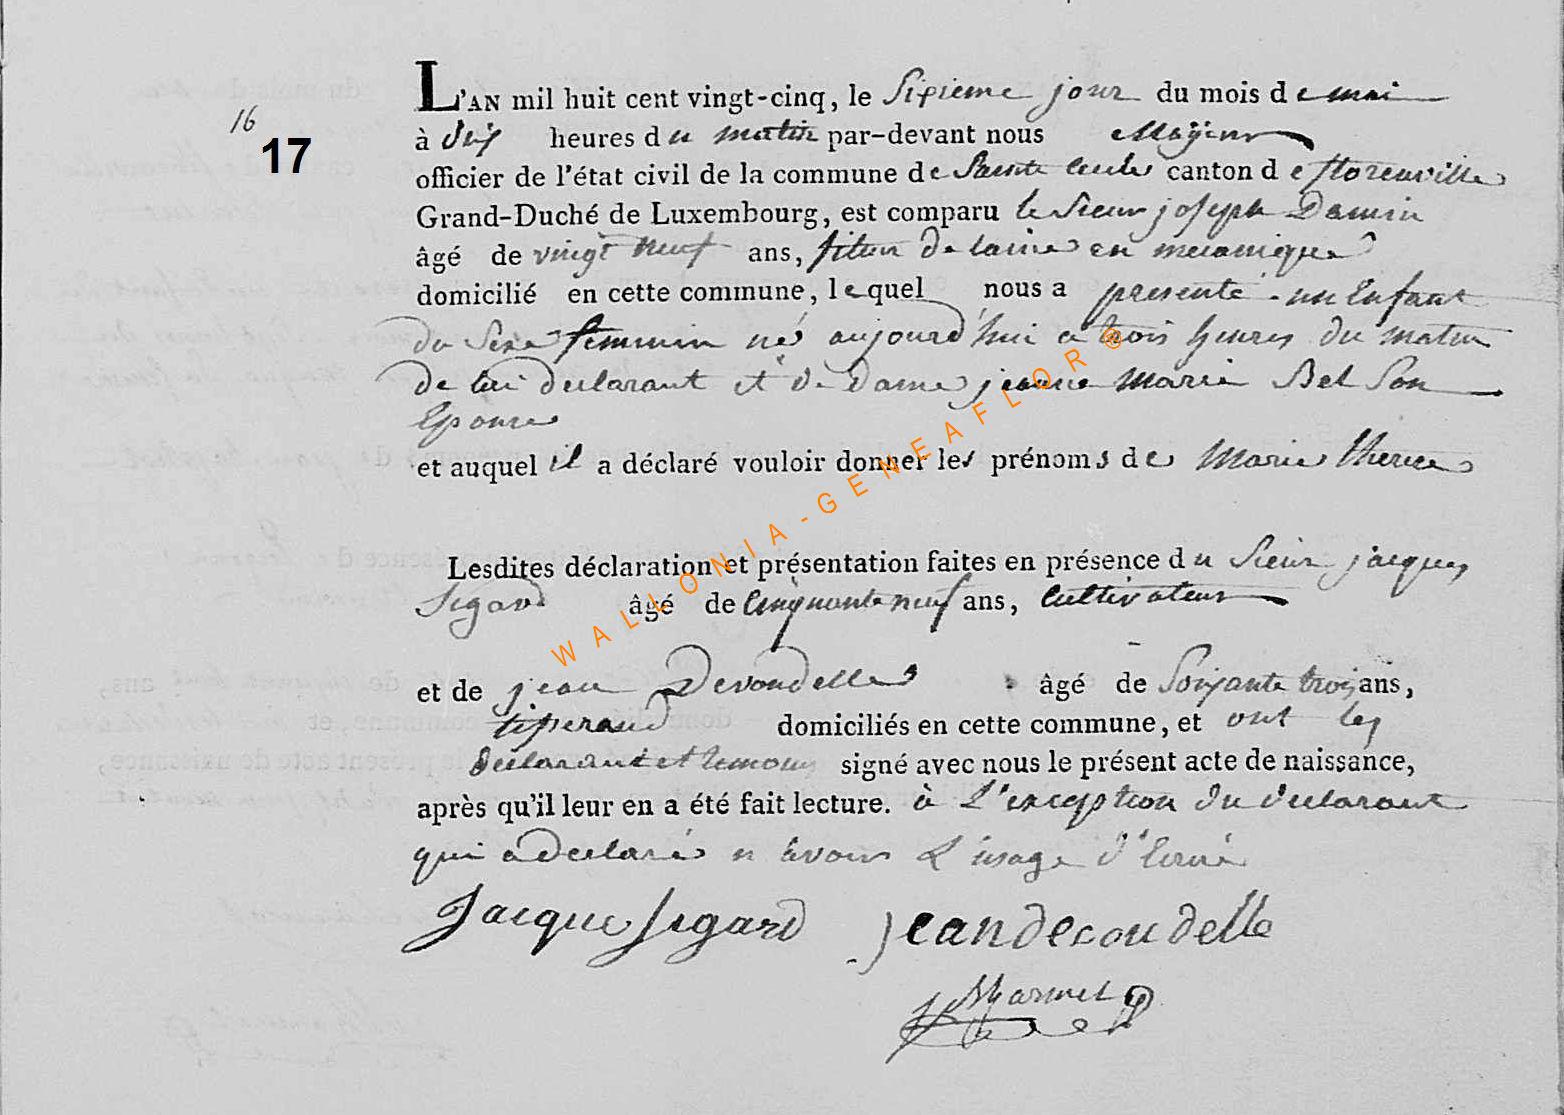 L'AN mil huit cent vingt-cinq, le Sixieme jour du mois de mai
16
17
à dix heures du matin par-devant nous Mayeur
officier de l'état civil de la commune de Sainte Cecile canton de florenville
Grand-Duché de Luxembourg, est comparu le Sieur joseph Damin
âgé de vingt neuf ans, fileur de laine en mecanique
domicilié en cette commune, lequel nous a presenté un Enfant
du Sexe feminin né aujourd'hui a trois heures du matin
de lui declarant et de Dame jeanne Marie Bel Son
Epouse
et auquel il a déclaré vouloir donner les prénoms de Marie therese
Lesdites déclaration et présentation faites en présence du Sieur jacques
Sigard âgé de Cinquante neuf ans, Cultivateur
et de jean Decondelle âgé de Soixante trois ans,
tisserand domiciliés en cette commune, et ont les
declarant et temoins signé avec nous le présent acte de naissance,
après qu'il leur en a été fait lecture. à L'exception du declarant
qui a declaré n'avoir L'usage d'Ecrire
Jacque Sigard jean decoudelle
WALLONIA-GENEAFLOR®